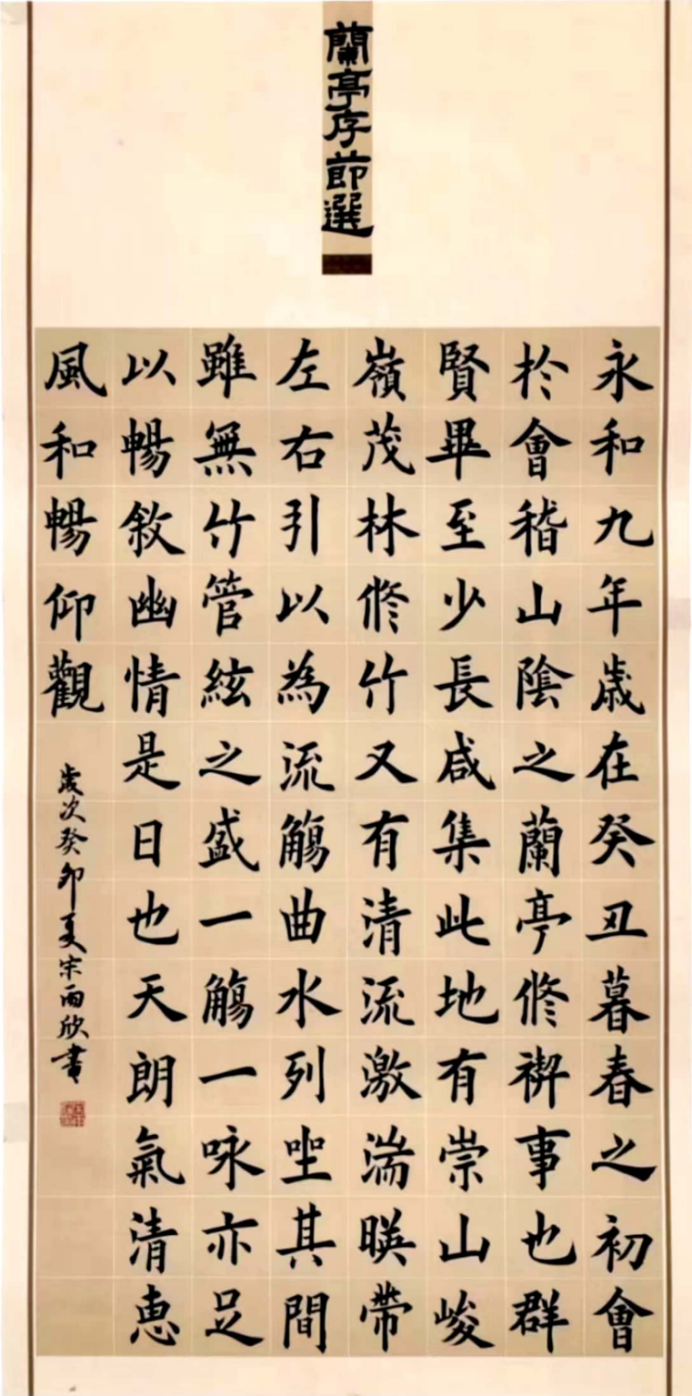 蘭亭序節選
永和九年歲在癸丑暮春之初會
於會稽山陰之蘭亭修禊事也群
賢畢至少長咸集此地有崇山峻
嶺茂林修竹又有清流激湍暎帶
左右引以為流觴曲水列坐其間
雖無竹管絃之盛一觴一咏亦足
以暢敘幽情是日也天朗氣清惠
風和暢仰觀
歲次癸卯夏宋雨欣書